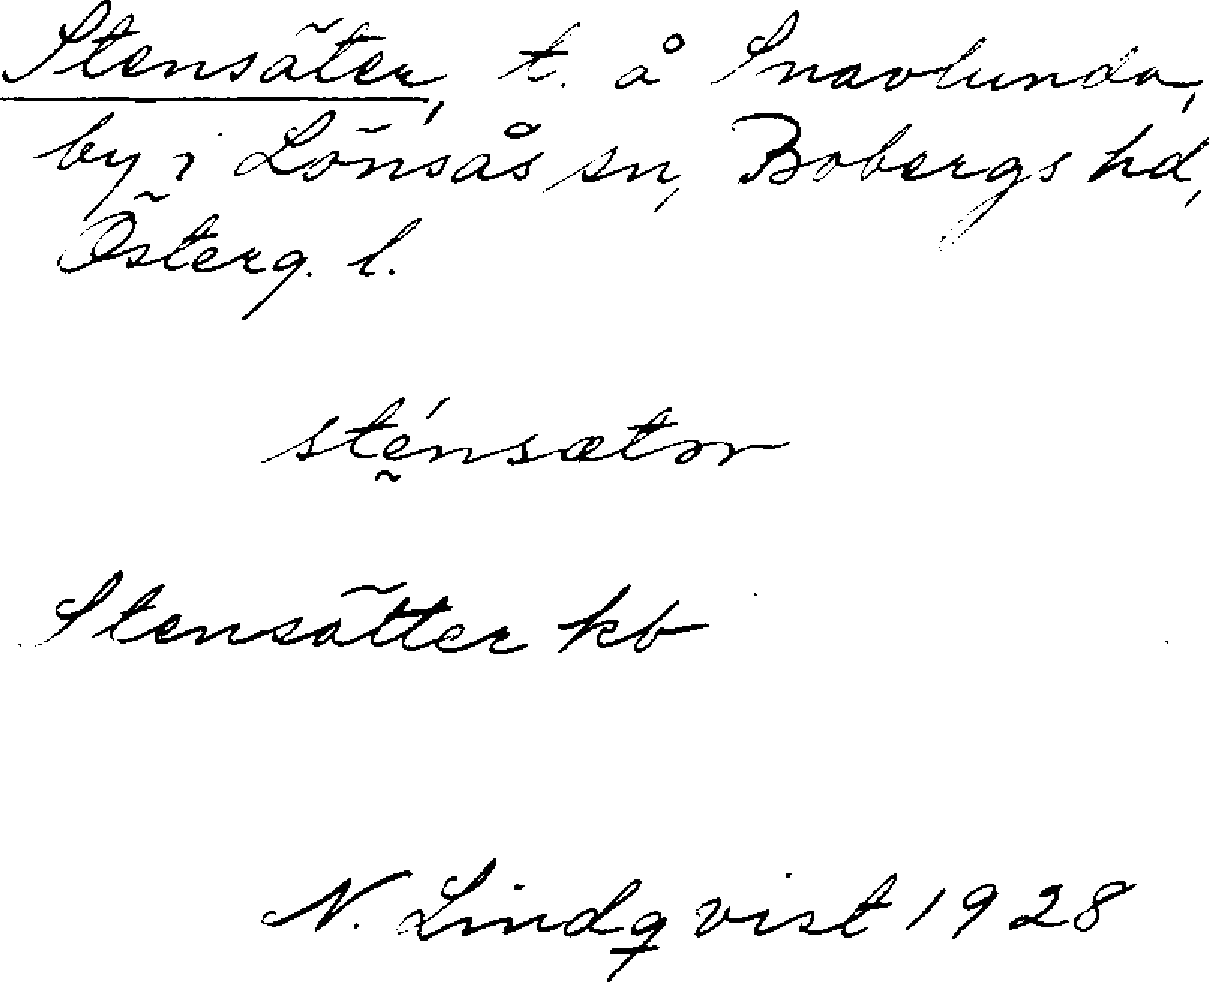 Stensäter, t. å Snavlunda,
by i Lönsås sn, Bobergs hd,
Österg. l.
stḛ́nsætər
Stensätter kb
N. Lindqvist 1928